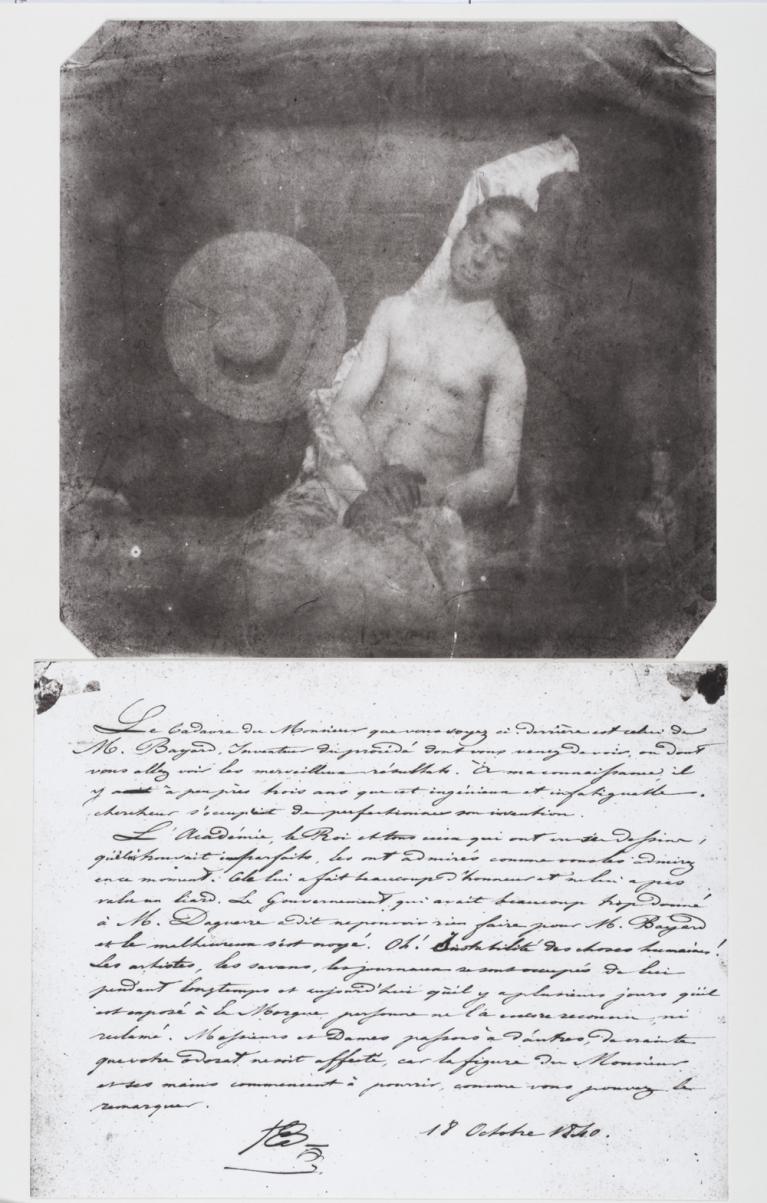 Le Cadavre du Monsieur que vous voyez ci derrière est celui de
M. Bayard, Inventeur du procédé dont vous venez de voir, ou dont
vous allez voir les merveilleux résultats. À ma connaissance, il
y a à peu près trois ans que cet ingénieux et infatiguable
chercheur s'occupait de perfectionner son invention.
L'Académie, le Roi et tous ceux qui ont vu ses dessins,
qu'il trouvait imparfaits, les ont admirés comme vous les admirez
en ce moment. Cela lui a fait beaucoup d'honneur et ne lui a pas
valu un liard. Le Gouvernement, qui avait beaucoup trop donné
à M. Daguerre a dit ne pouvoir rien faire pour M. Bayard
et le malheureux s'est noyé. Oh! Instabilité des choses humaines!
Les artistes, les savans, les journaux se sont occupés de lui
pendant longtemps et aujourd'hui qu'il y a plusieurs jours qu'il
est exposé à la Morgue, personne ne l'a encore reconnu, ni
réclamé. Messieurs et Dames, passons à d'autres, de crainte
que votre odorat ne soit affecté, car la figure du Monsieur
et ses mains commencent à pourrir, comme vous pouvez le
remarquer.
HB
18 Octobre 1840.